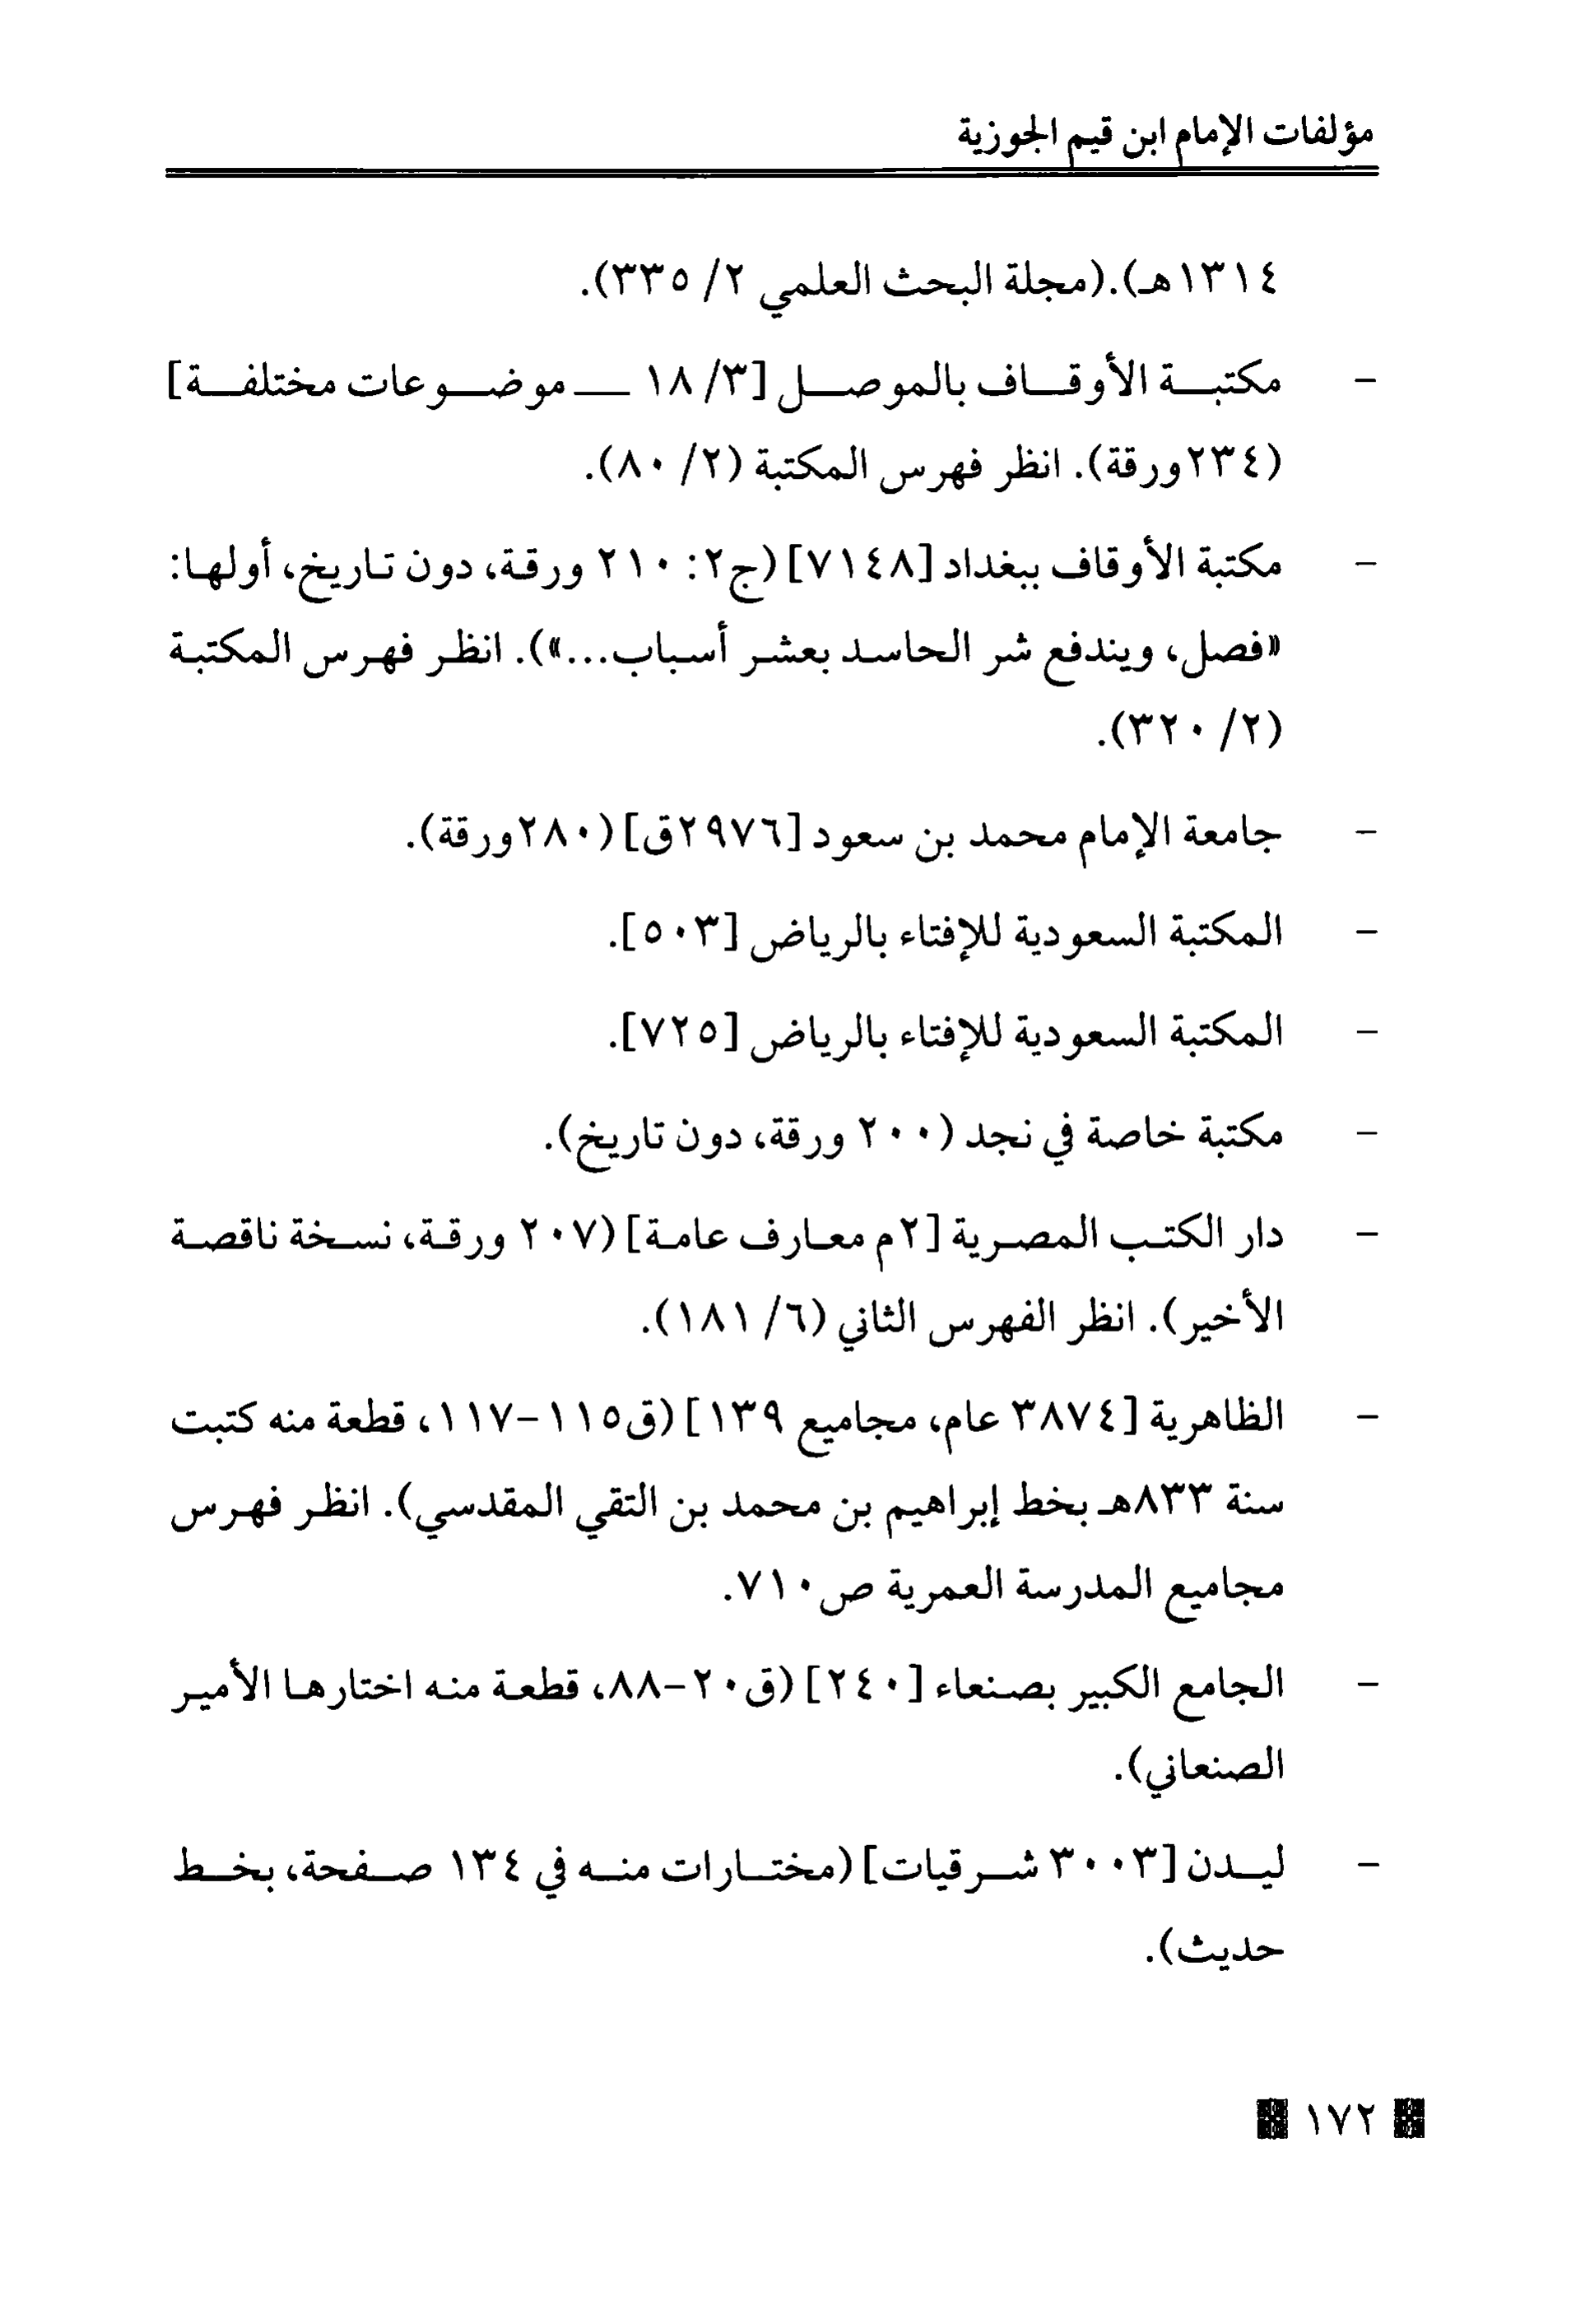 مؤلفات الإمام ابن قيم الجوزية
١٣١٤هـ). (مجلة البحث العلمي ٢/ ٣٣٥).
- مكتبة الأوقاف بالموصل [٣/ ١٨ — موضوعات مختلفة]
(٢٣٤ورقة). انظر فهرس المكتبة (٢/ ٨٠).
- مكتبة الأوقاف ببغداد [٧١٤٨] (ج٢: ٢١٠ ورقة، دون تاريخ، أولها:
«فصل، ويندفع شر الحاسد بعشر أسباب...»). انظر فهرس المكتبة
(٢/ ٣٢٠).
- جامعة الإمام محمد بن سعود [٢٩٧٦ق] (٢٨٠ورقة).
- المكتبة السعودية للإفتاء بالرياض [٥٠٣].
- المكتبة السعودية للإفتاء بالرياض [٧٢٥].
- مكتبة خاصة في نجد (٢٠٠ ورقة، دون تاريخ).
- دار الكتب المصرية [٢م معارف عامة] (٢٠٧ ورقة، نسخة ناقصة
الأخير). انظر الفهرس الثاني (٦/ ١٨١).
- الظاهرية [٣٨٧٤ عام، مجاميع ١٣٩] (ق١١٥-١١٧، قطعة منه كتبت
سنة ٨٣٣هـ بخط إبراهيم بن محمد بن التقي المقدسي). انظر فهرس
مجاميع المدرسة العمرية ص٧١٠.
- الجامع الكبير بصنعاء [٢٤٠] (ق٢٠-٨٨، قطعة منه اختارها الأمير
الصنعاني).
- ليدن [٣٠٠٣ شرقيات] (مختارات منه في ١٣٤ صفحة، بخط
حديث).
١٧٢